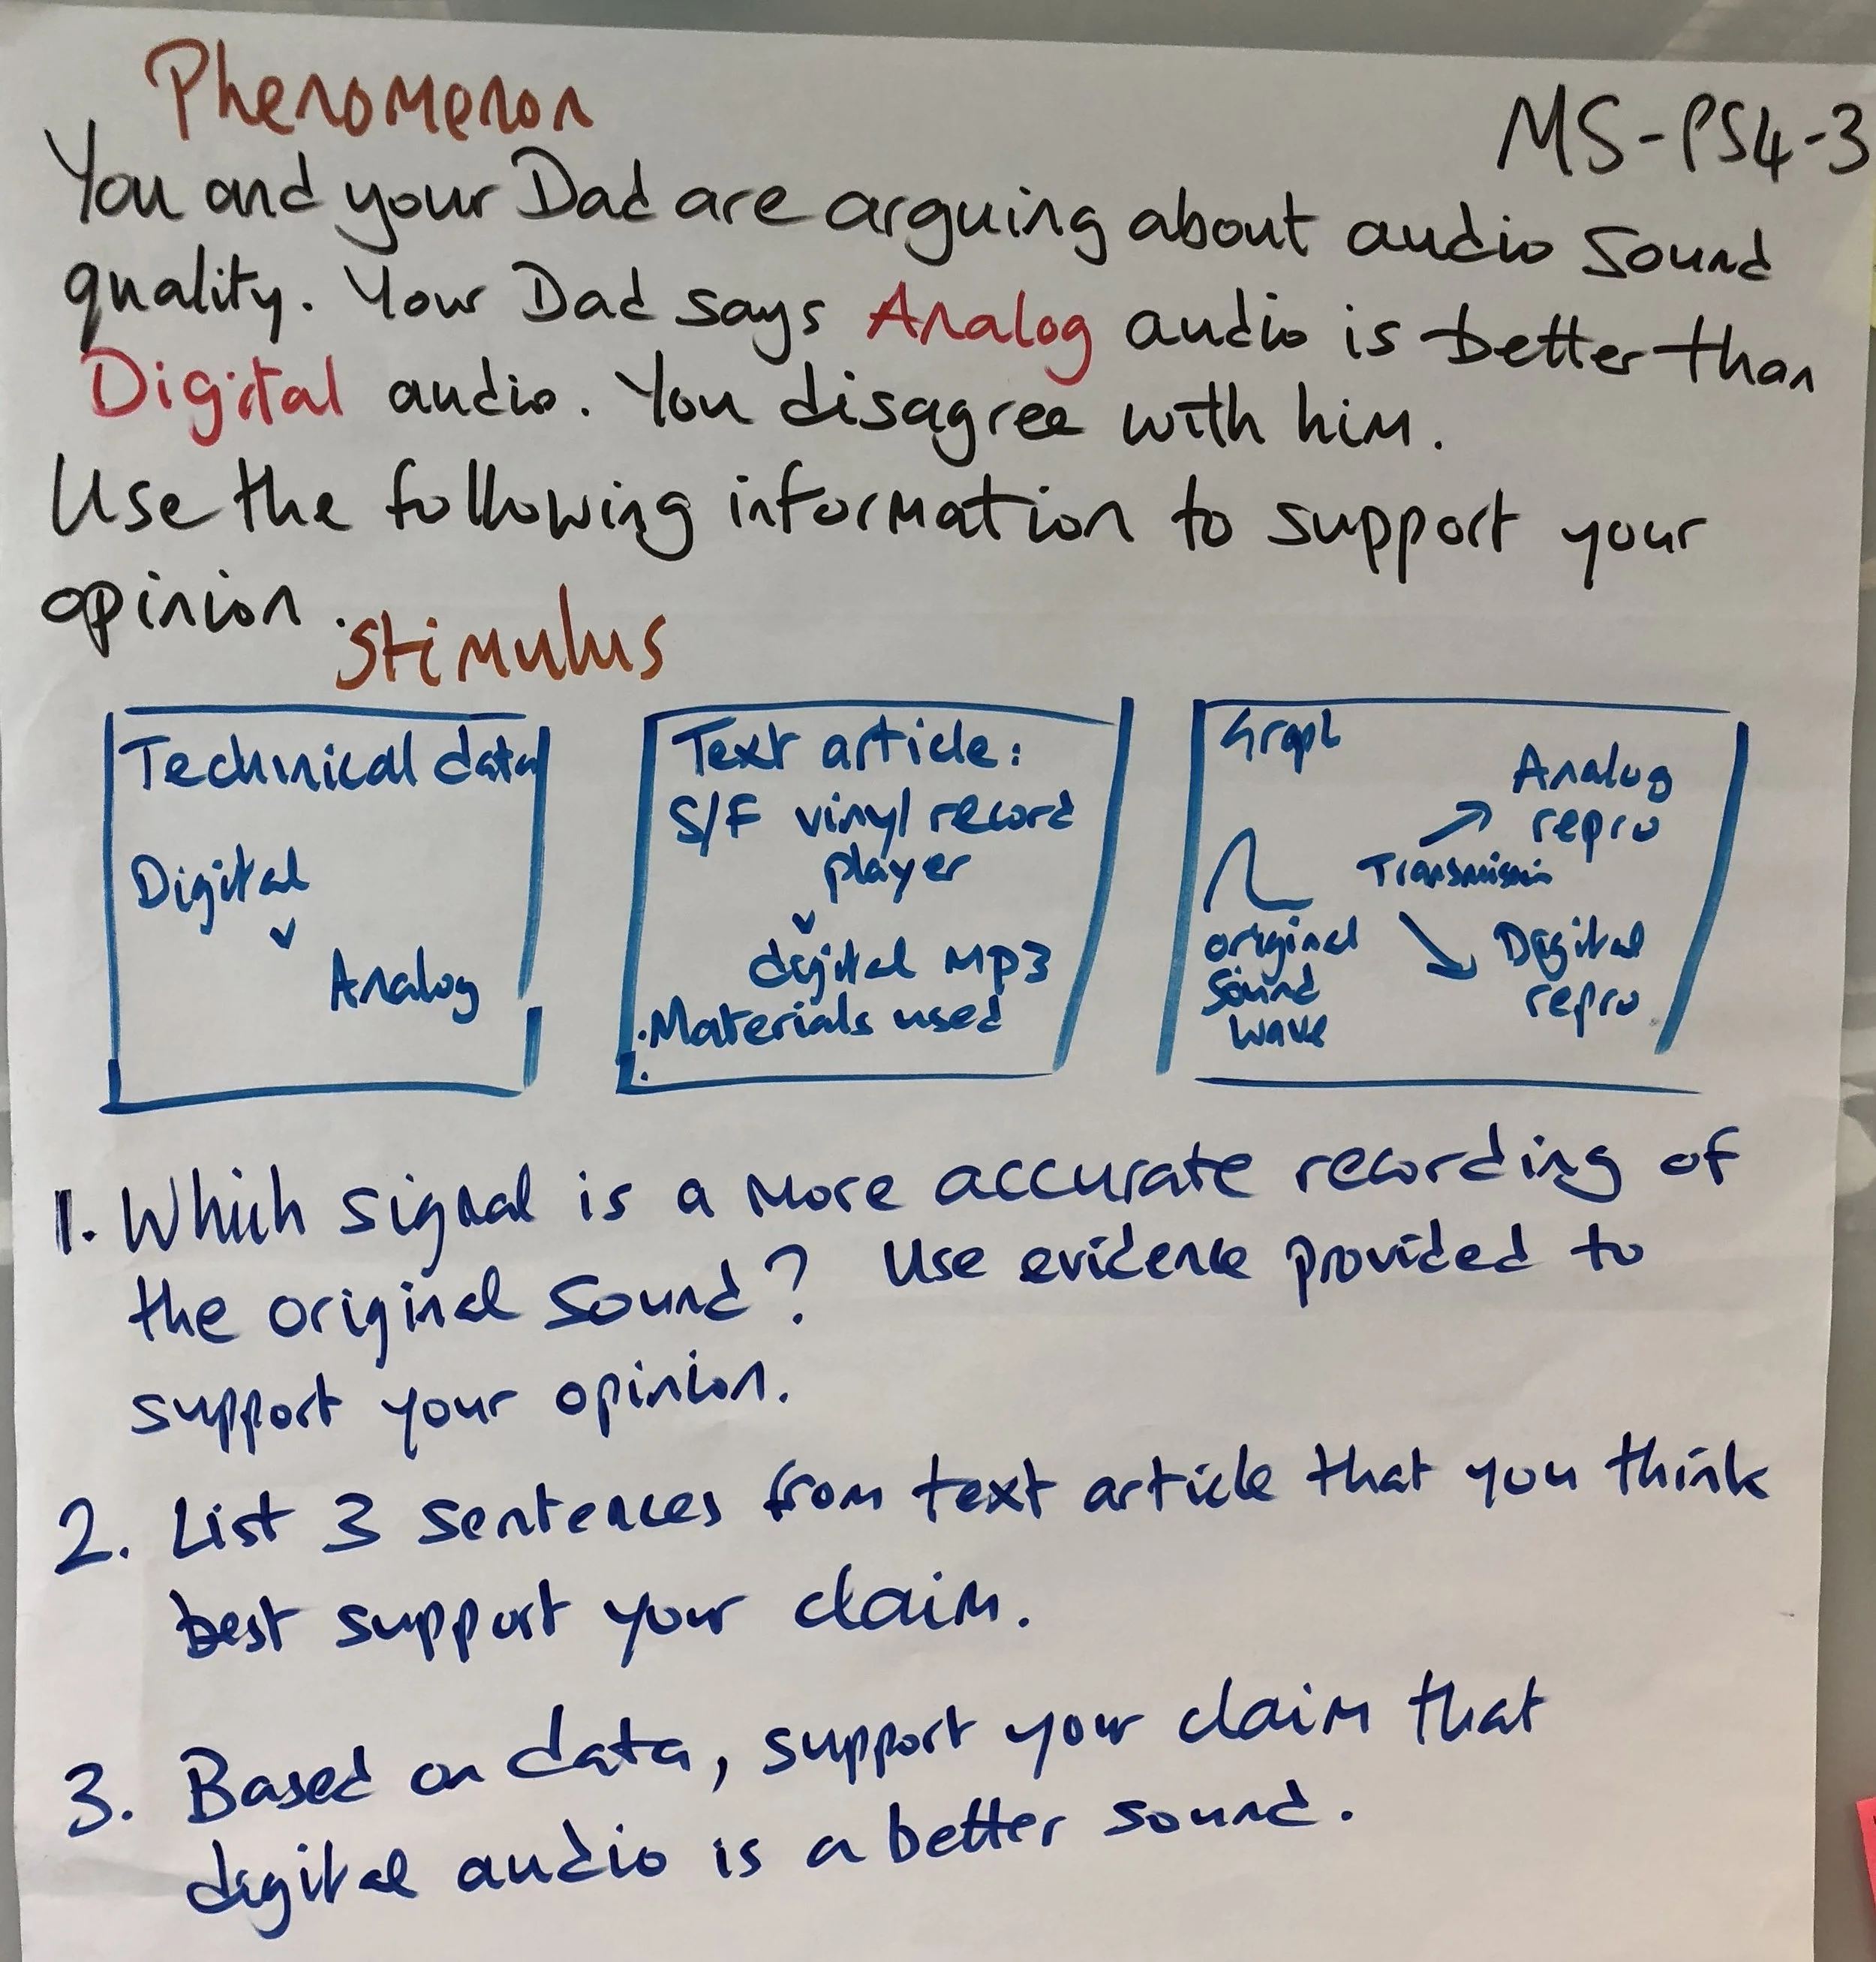 Phenomenon
MS-PS4-3
You and your Dad are arguing about audio sound
quality. Your Dad says Analog audio is better than
Digital audio. You disagree with him.
Use the following information to support your
opinion.
Stimulus
Technical data
Digital
v
Analog
Text article:
S/F vinyl record
player
v
digital MP3
.Materials used
.
Graph
Analog
repro
Transmission
original
sound
wave
Digital
repro
1. Which signal is a more accurate recording of
the original sound? Use evidence provided to
support your opinion.
2. List 3 sentences from text article that you think
best support your claim.
3. Based on data, support your claim that
digital audio is a better sound.